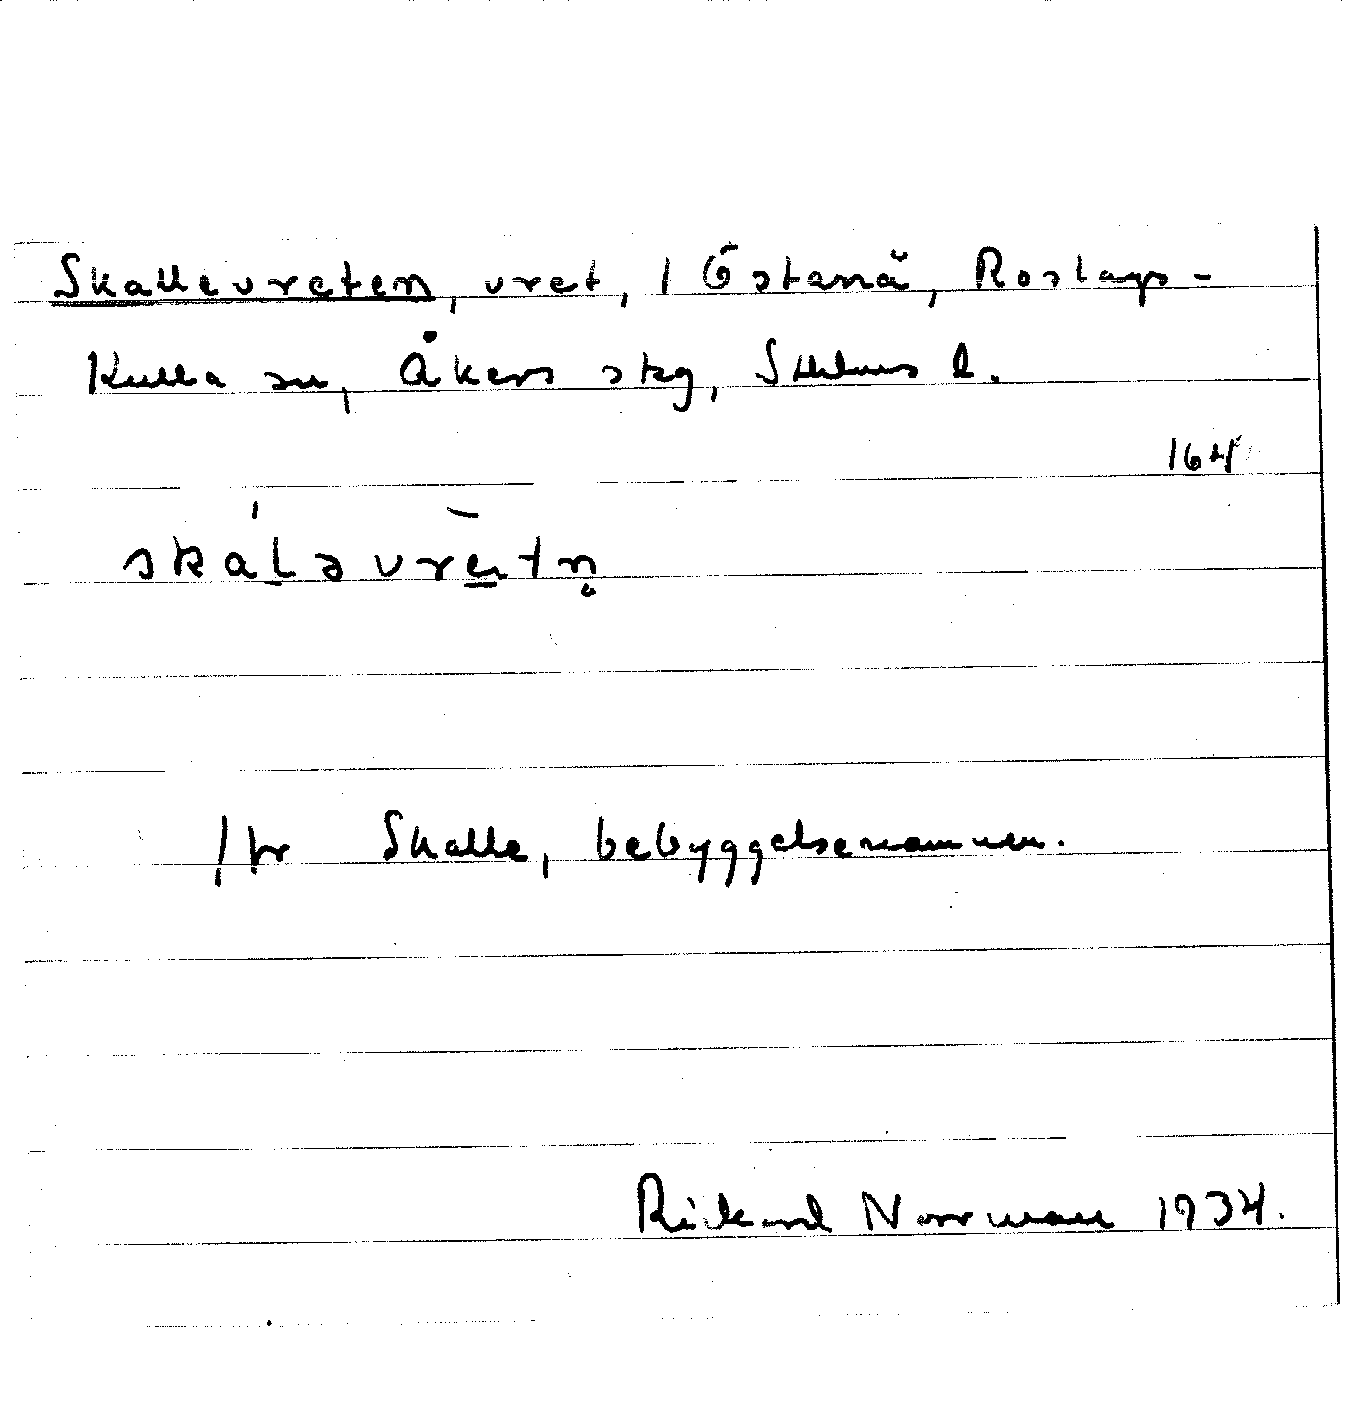 Skallevreten, vret, 1 Östanå, Roslags-
Kulla sn, Åkers skg, Sthlms l.
164
skaləvretn̥
Jfr Skalle, bebyggelsenamnen.
Rickard Norrman 1934.